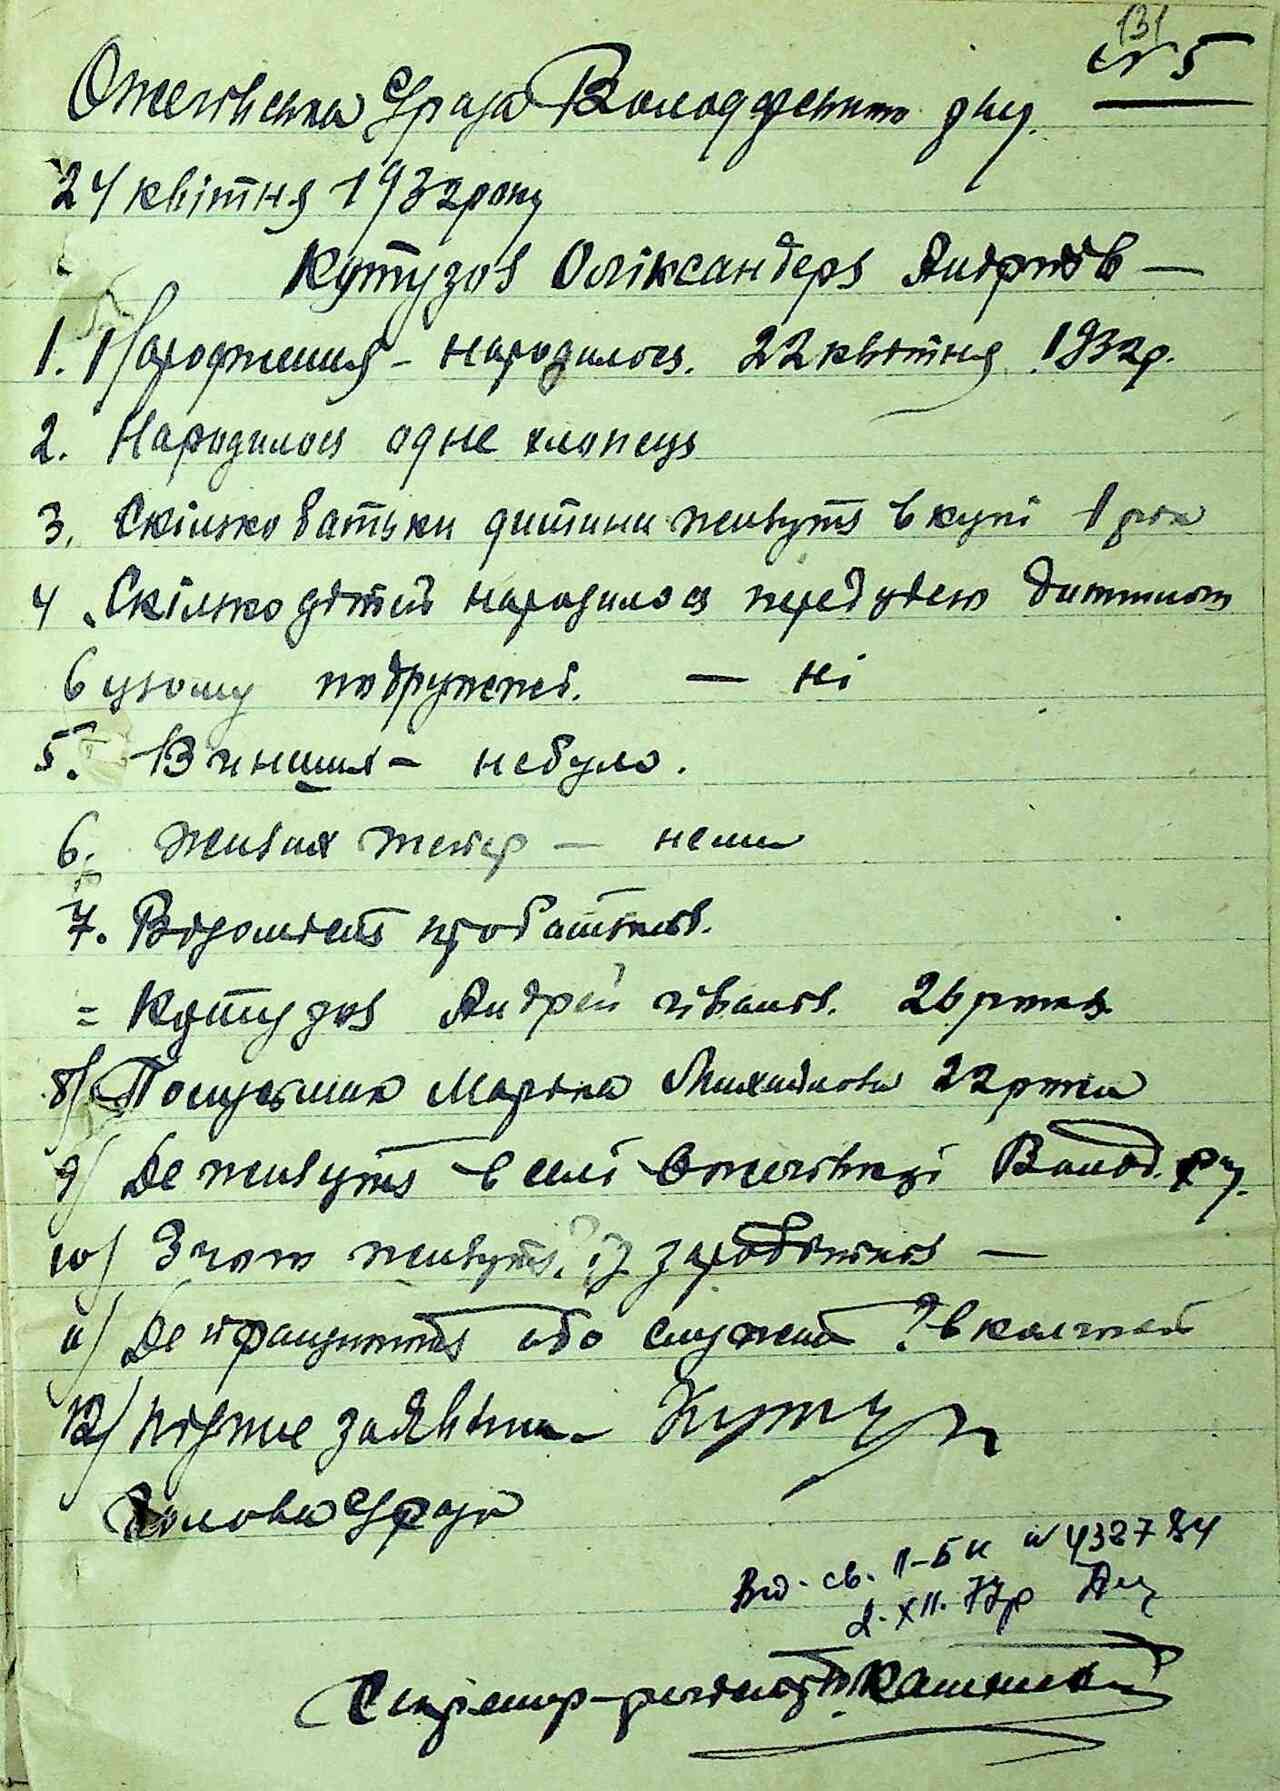 131
№ 5
Ожегівська С/рада Володарського р-ну.
24 квітня 1932 року
Кутузов Оліксандер Андріів —
1. Народження – народилось. 22 квітня 1932 р.
2. Народилось одне хлопець
3. Скілько батьки дитини живуть вкупі 1 рік
4. Скілько дітей народилось перед цією дитиною
в цьому подружжі. — ні
5. В чинших – небуло.
6. живих тепер — нема
7. Відомість про батьків.
= Кутузов Андрей Іванов. 26 років
8) Марта Михайлова 22 роки
9) Де живуть в селі Ожегівкці Волод. р-ну.
10) З чого живуть? із заробітків —
11) Де працюють або служать? в колгоспі
12) підпис заявника –
Голова С/ради
Вид. св. II-БК № 432784
2.XII.72р
Секретар-